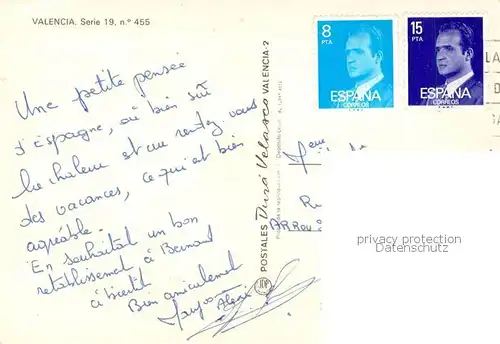 VALENCIA. Serie 19, n.° 455
Une petite pensée
d'Espagne, où bien sûr
la chaleur et au rendez vous
des vacances, ce qui et bien
agréable.
En souhaitat un bon
retablissement à Bernard
à bientôt
Bien amicalement
Alexi
POSTALES Durá Velasco VALENCIA-2
JDP
8
PTA
ESPAÑA
CORREOS
15
PTA
ESPAÑA
CORREOS
LA
D
Mme
ARROU
privacy protection
Datenschutz